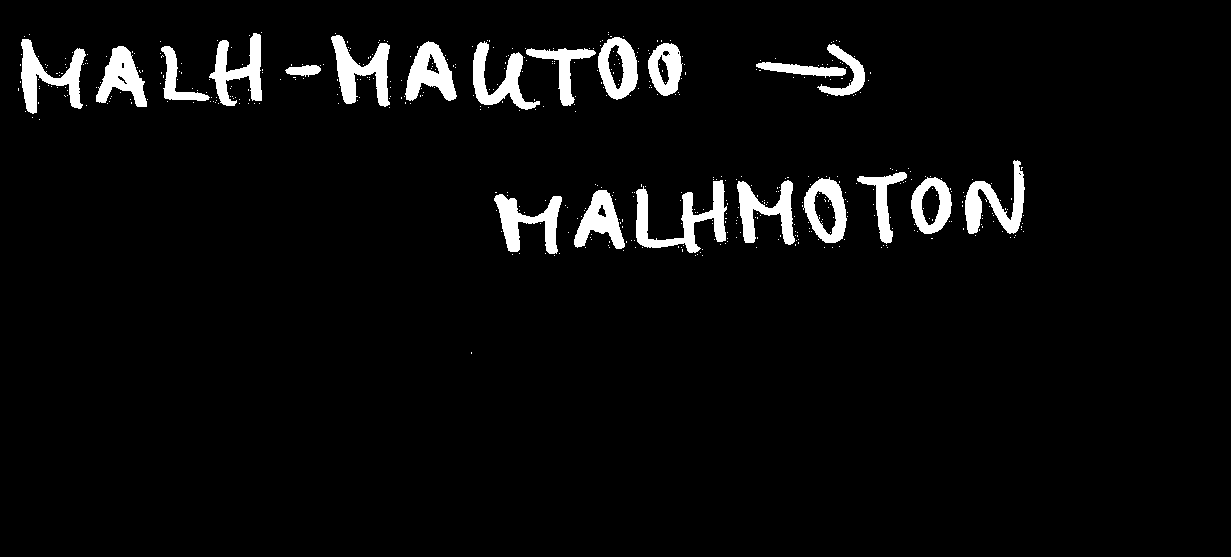 MALH-MAUTOO →
MALHMOTON